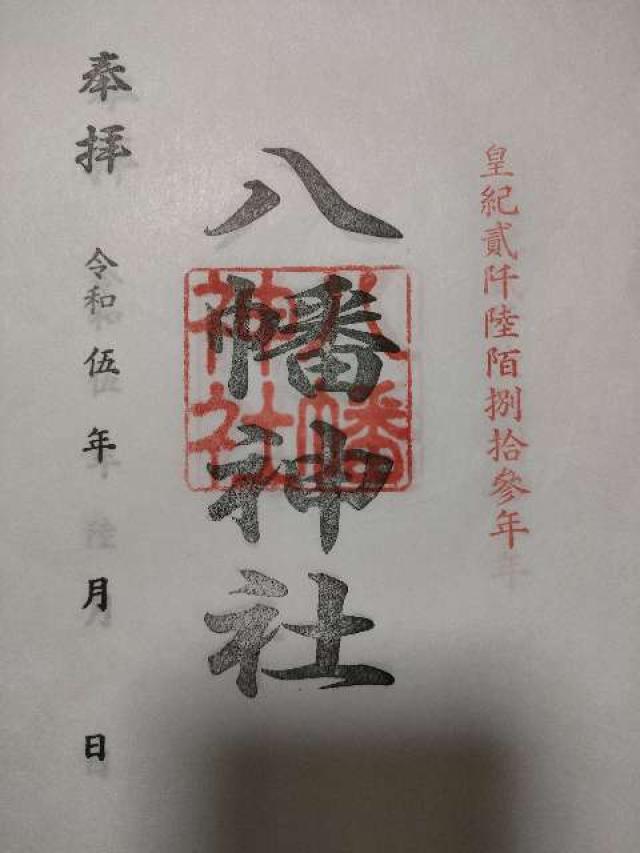 皇紀貳阡陸陌捌拾參年
八幡神社
八幡
神社
奉拜
令和伍年 月 日